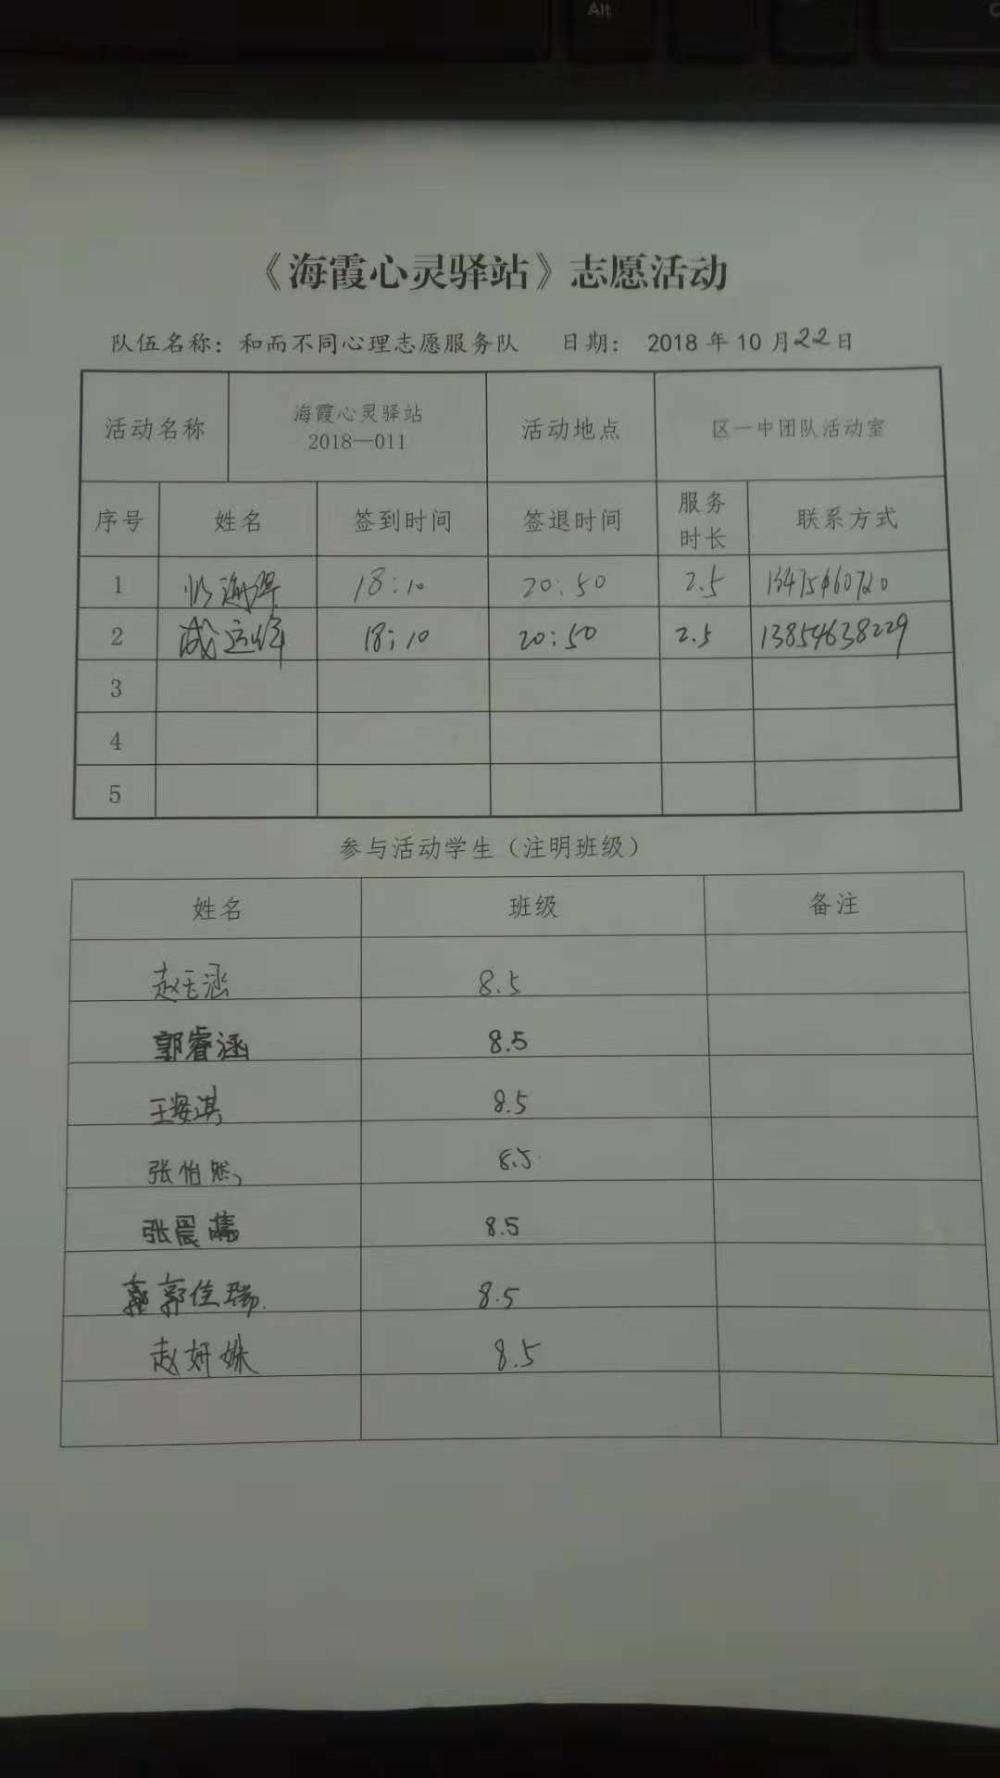 Alt
《海霞心灵驿站》志愿活动
队伍名称：和而不同心理志愿服务队 日期： 2018 年 10 月 22 日
活动名称 海霞心灵驿站 2018—011 活动地点 区一中团队活动室
序号 姓名 签到时间 签退时间 服务时长 联系方式
1 18:10 20:50 2.5
2 18:10 20:50 2.5 13854638229
3
4
5
参与活动学生（注明班级）
姓名 班级 备注
赵玉涵 8.5
郭睿涵 8.5
王安淇 8.5
张伯然 8.5
张晨 8.5
郭佳瑞 8.5
赵妍姝 8.5